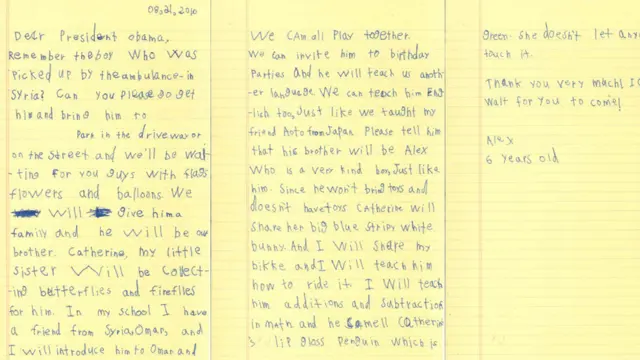 08.21, 2016
Dear President obama,
Remember the boy who was
Picked up by the ambulance in
Syria? Can you please go get
him and bring him to
Park in the driveway or
on the street and we'll be wai-
ting for you guys with flags
flowers and balloons. We
will give him a
family and he will be our
brother. Catherine, my little
sister will be collect-
ing butterflies and fireflies
for him. In my school I have
a friend from Syria, Omar, and
I will introduce him to Omar and
We can all play together.
We can invite him to birthday
Parties and he will teach us anoth-
er language. We can teach him Eng
lish too, Just like we taught my
friend Aoto from Japan. Please tell him
that his brother will be Alex
Who is a very kind boy, Just like
him. Since he won't bring toys and
doesn't have toys Catherine will
share her big blue stripy white
bunny. And I will share my
bikke and I will teach him
how to ride it. I will teach
him additions and subtractions
in math and he smell Catherine
's lip gloss penguin which is
green. She doesn't let any
touch it.
Thank you very much! I
wait for you to come!
Alex
6 years old